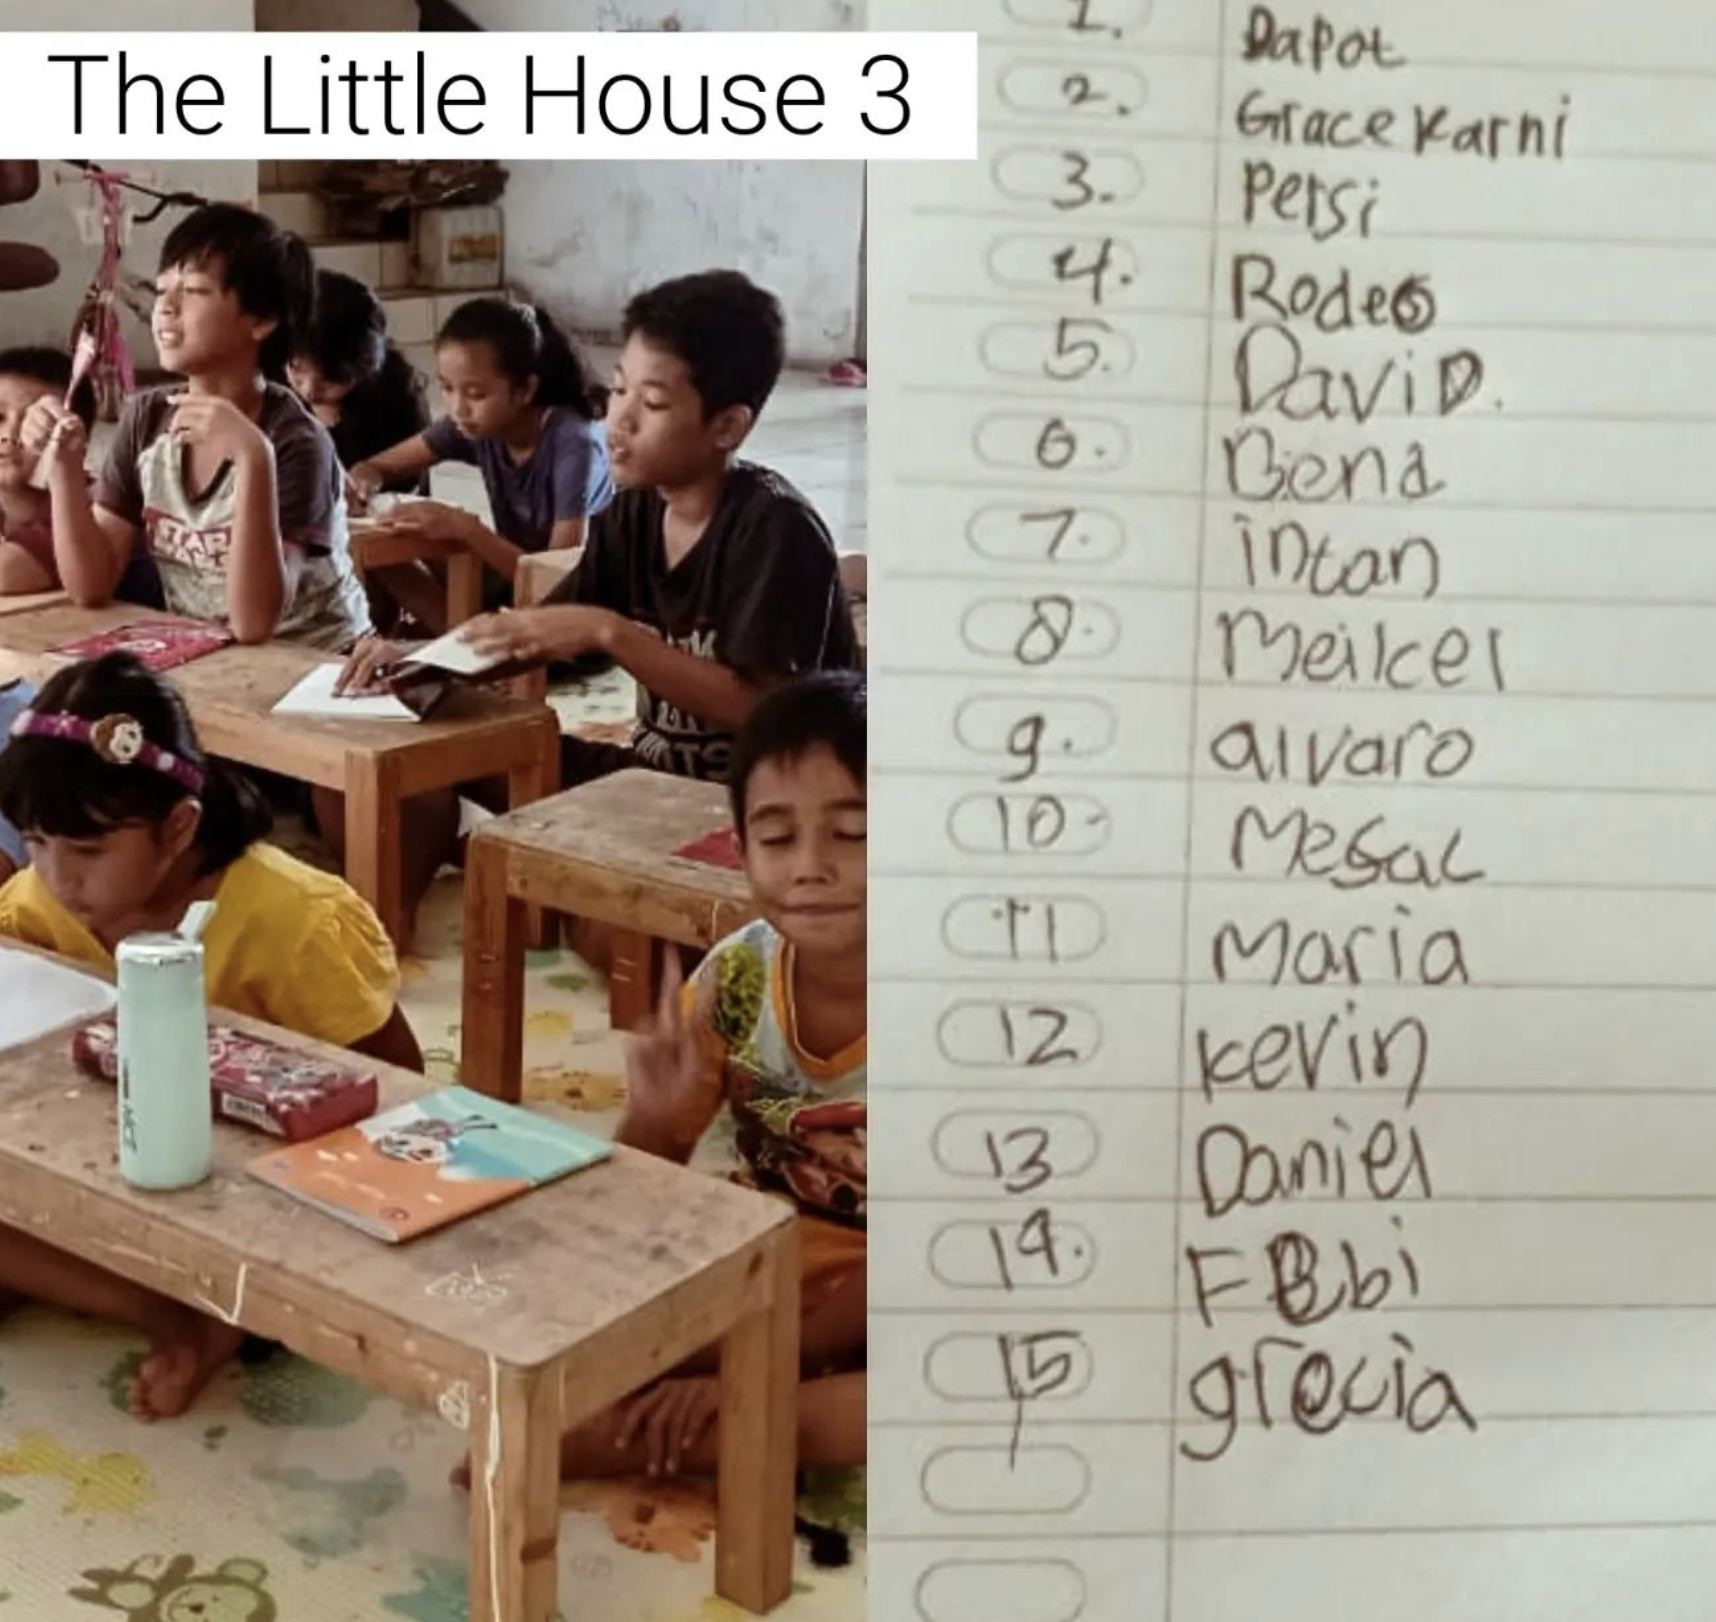 The Little House 3
1. Dapot
2. Grace Karni
3. Persi
4. Rodeo
5. DaviD.
6. Bena
7. intan
8. Meikel
9. alvaro
10. Mesac
11 Maria
12 kevin
13 Daniel
14. Febi
15 grecia